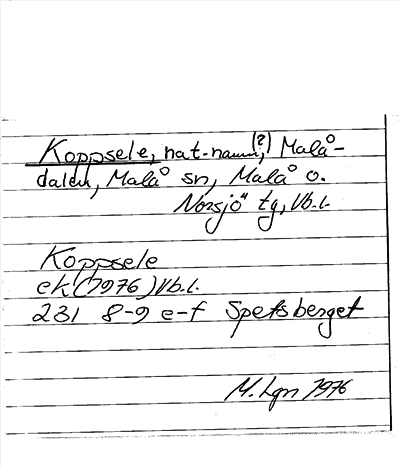 Koppsele, nat.-namn(?), Malå-
dalen, Malå sn, Malå o.
Norsjö tg, Vb.l.
Koppsele
ek (1976) Vb.l.
231 8-9 e-f Spetsberget
M. Lgn 1976